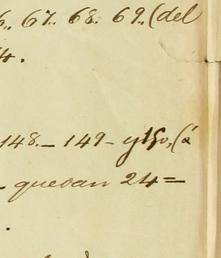 67. 68. 69. (del
4.
148. – 149 – y 150, (á
– quedan 24 =